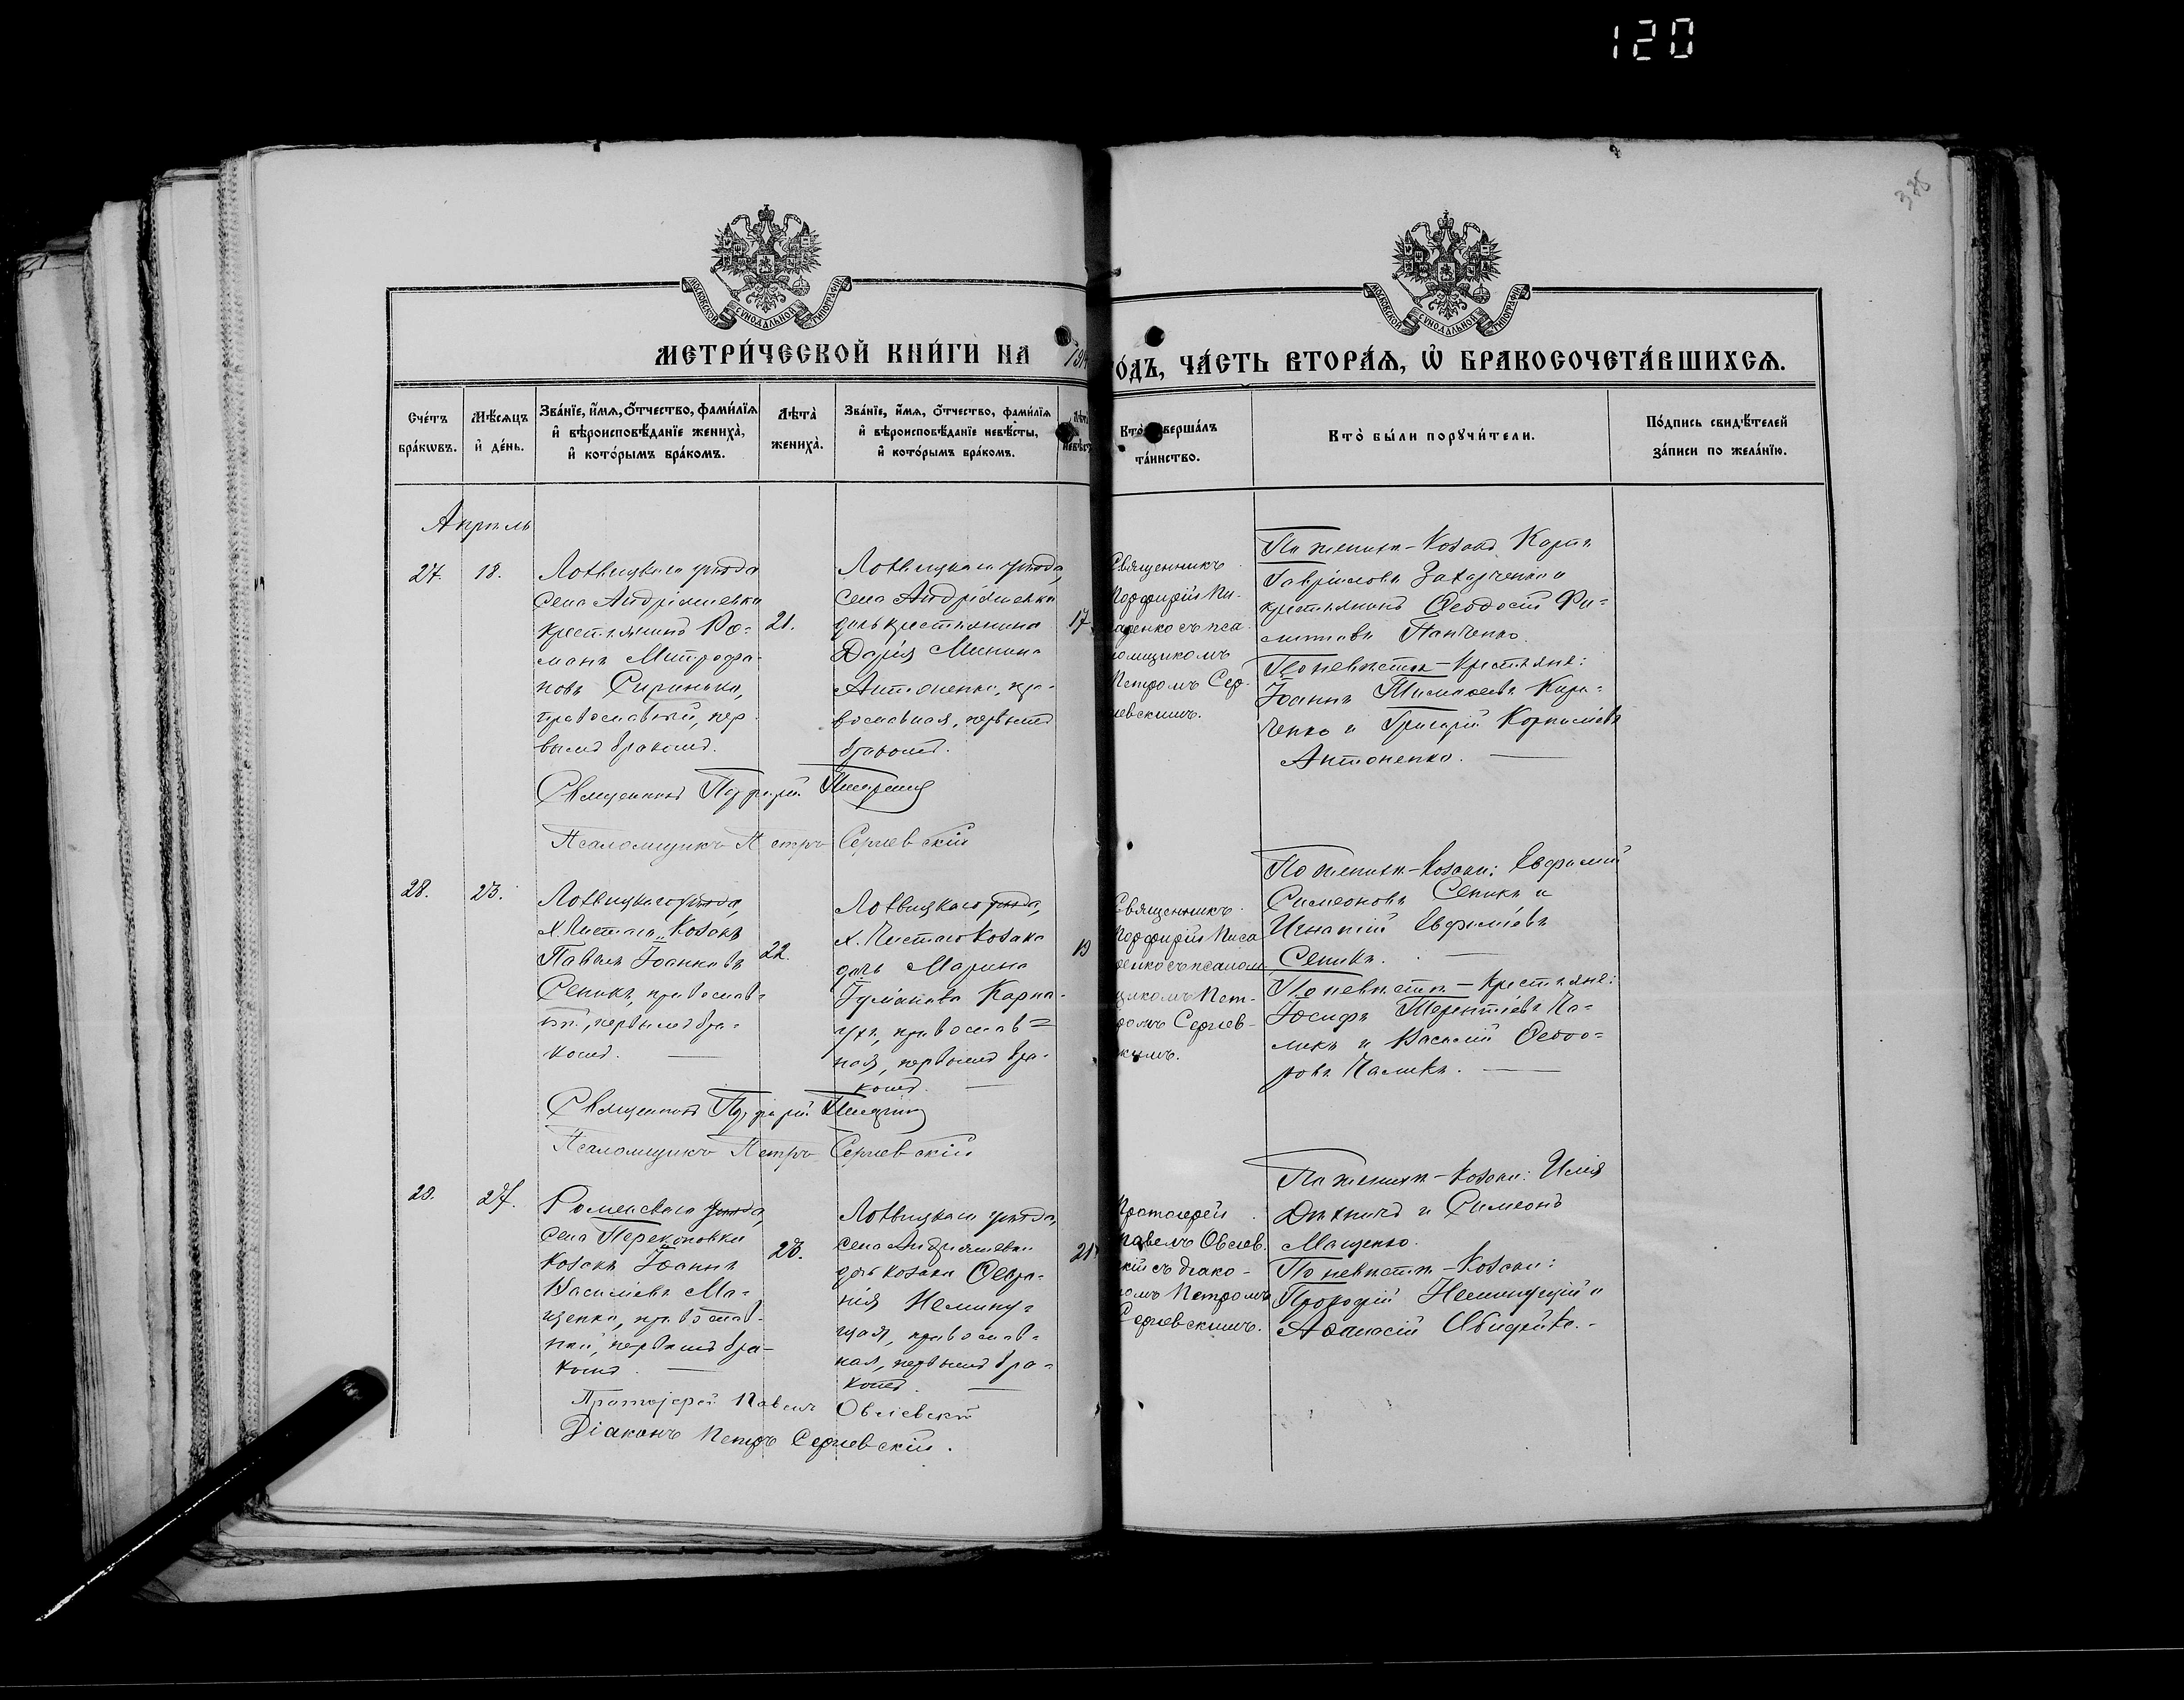 120
338
МОСКОВСКОЙ СѴНОДАЛЬНОЙ ТИПОГРАФІИ
МОСКОВСКОЙ СѴНОДАЛЬНОЙ ТИПОГРАФІИ
МЕТРИ́ЧЕСКОЙ КНИ́ГИ НА
О́ДЪ, ЧА́СТЬ ВТОРА́Ѧ, Ѡ҆ БРАКОСОЧЕТА́ВШИХСѦ.
Сче́тъ
бра́кѡвъ.
Мѣ́сѧцъ
и҆ де́нь.
Зва́нїе, и҆́мѧ, ѻ҆́тчество, фами́лїѧ
и҆ вѣроисповѣ́данїе жениха̀,
и҆ кото́рымъ бра́комъ.
Лѣта̀
жениха̀.
Зва́нїе, и҆́мѧ, ѻ҆́тчество, фами́лїѧ
и҆ вѣроисповѣ́данїе невѣ́сты,
и҆ кото́рымъ бра́комъ.
Кто̀ вершáлъ
та́инство.
Кто̀ бы́ли порꙋчи́тели.
По́дпись свидѣ́телей
за́писи по жела́нїю.
Апрѣль
27.
18.
Лохвицкаго уѣзда
села Андріяшевки
крестьянинъ Ро=
манъ Митрофа-
новъ Сиринько,
православный, пер-
вымъ бракомъ.
21.
Лохвицкаго уѣзда,
села Андріяшевки
дочь крестьянина
Дарія Минина
Антоненко, пра-
вославная, первымъ
бракомъ.
17
Священникъ
Порфирій Пи-
аренко съ пса-
омщикомъ
Петромъ Сер-
евскимъ.
По женихѣ-Козакъ Карпъ
Гавріиловъ Захарченко и
крестьянинъ Ѳеодосій Фи=
липповъ Панченко.
По невѣстѣ-крестьяне:
Іоаннъ Тимоѳеевъ Кири=
ченко и Григорій Корниліевъ
Антоненко.
Священникъ Порфирій Писаренко
Псаломщикъ Петръ Сергіевскій
28.
23.
Лохвицкаго уѣзда,
х. Чистаго, Козакъ
Павелъ Іоанновъ
Сепикъ, православ=
ный, первымъ бра-
комъ.
22.
Лохвицкаго уѣзда,
х. Чистаго Козака
дочь Марина
19
ная, первымъ бра-
комъ.
Священникъ
Порфирій Писа
ренко съ псалом-
щикомъ Пет-
ромъ Сергіев-
кимъ.
По женихѣ-Козаки: Евфимій
Симеоновъ Сепикъ и
Игнатій Евфиміевъ
Сепикъ.
По невѣстѣ-крестьяне:
Іосифъ Терентіевъ Па=
ликъ и Василій Ѳеодо=
ровъ Паликъ.
Священникъ Порфирій Писаренко
Псаломщикъ Петръ Сергіевскій
29.
27.
Роменскаго уѣзда,
села Перекоповки
козакъ Іоаннъ
Василіевъ Ма=
щенко, православ-
ный, первымъ бра-
комъ.
23.
Лохвицкаго уѣзда,
села Андріяшевки
дочь козака Ѳевро=
нія Немину=
щая, православ=
ная, первымъ бра=
комъ.
21
Протоіерей
Павелъ Овсіев-
кій съ діако-
омъ Петромъ
Сергіевскимъ.
По женихѣ-козаки: Илія
и Симеонъ
Мащенко.
По невѣстѣ-Козаки:
Прокофій Неминущій и
Аѳанасій
Протоіерей Павелъ Овсіевскій
Діаконъ Петръ Сергіевскій.